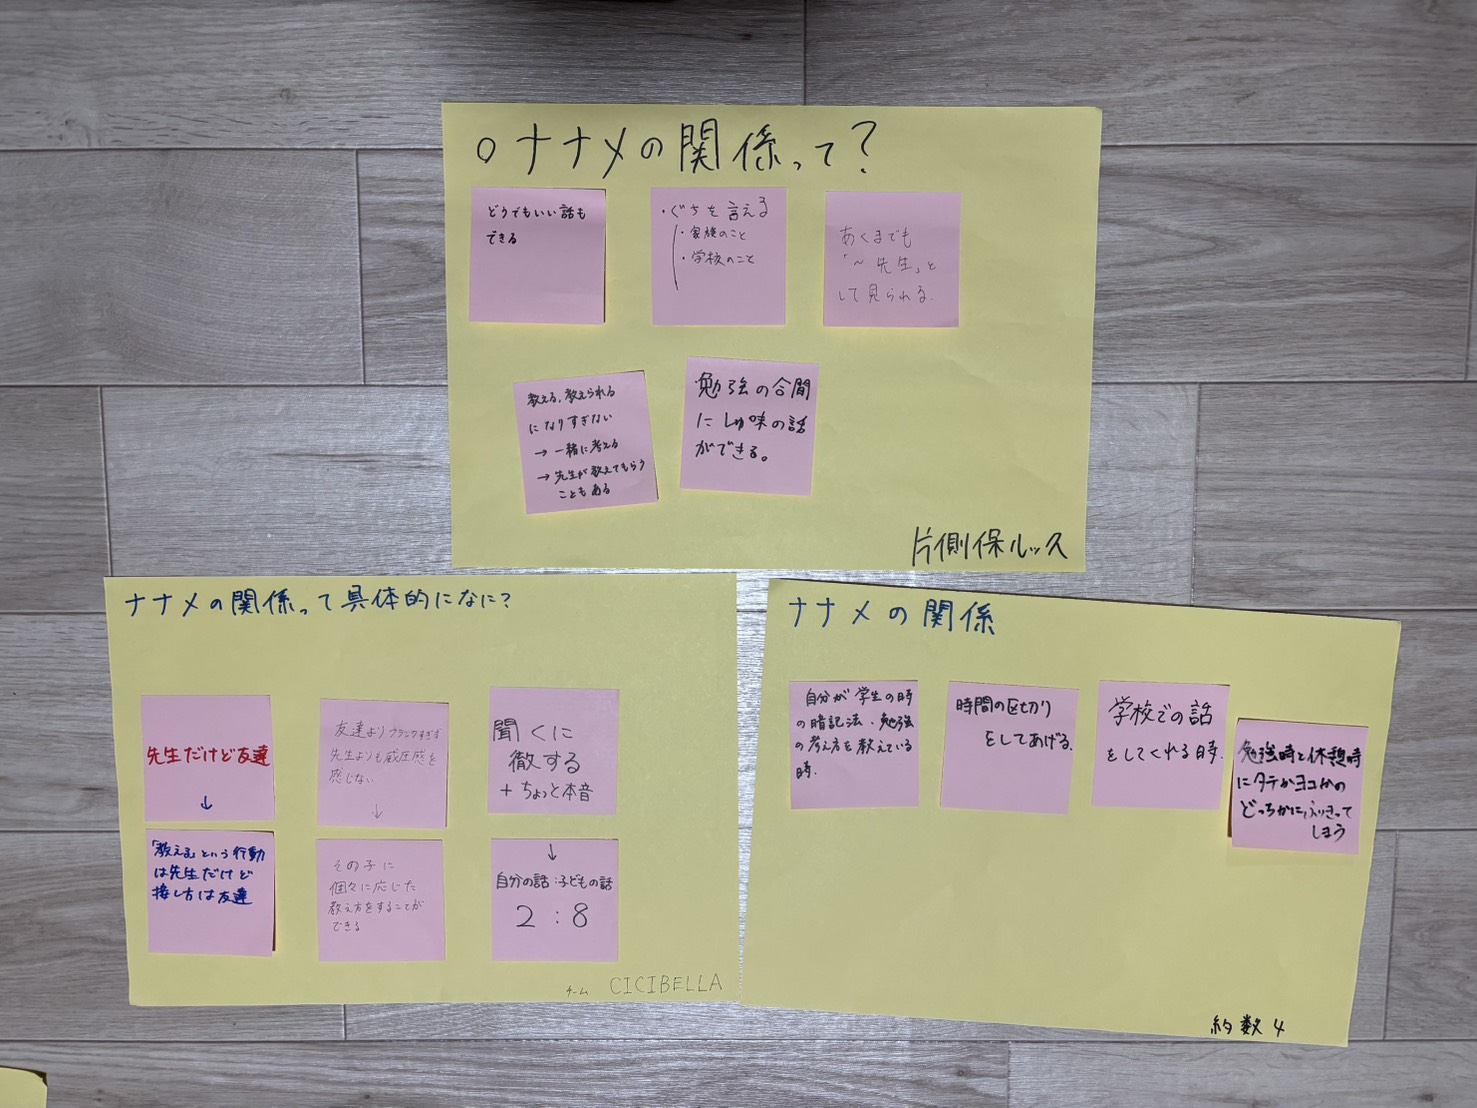 ○ナナメの関係って?
どうでもいい話も
できる
・ぐちを言える
・家族のこと
・学校のこと
あくまでも
「～先生」と
して見られる.
教える,教えられる
になりすぎない
→一緒に考える
→先生が教えてもらう
こともある
勉強の合間
にしゅ味の話
ができる。
片側保ルックス
ナナメの関係って具体的になに?
先生だけど友達
↓
「教える」という行動
は先生だけど
接し方は友達
友達よりフランクすぎず
先生よりも威圧感を
感じない
↓
その子に
個々に応じた
教え方をすることが
できる
聞くに
徹する
+ちょっと本音
↓
自分の話:子どもの話
2:8
チーム CICIBELLA
ナナメの関係
自分が学生の時
の暗記法、勉強
の考え方を教えている
時.
時間の区切り
をしてあげる.
学校での話
をしてくれる時.
勉強時と休憩時
にタテかヨコかの
どっちかにふりきって
しまう
約数4